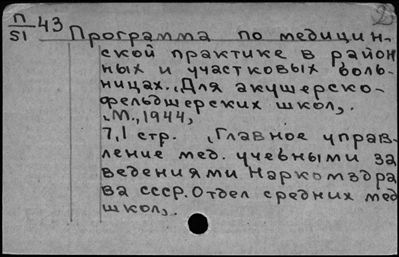 П/51-43 Программа по медицин-
ской практике в район
ных и участковых боль-
ницах. „Для акушерско-
фельдшерских школ„.
„М.„1944,
7,1 стр. „Главное управ-
ление мед. учебными за
ведениями Наркомздра
ва СССР. Отдел средних мед
школ„.